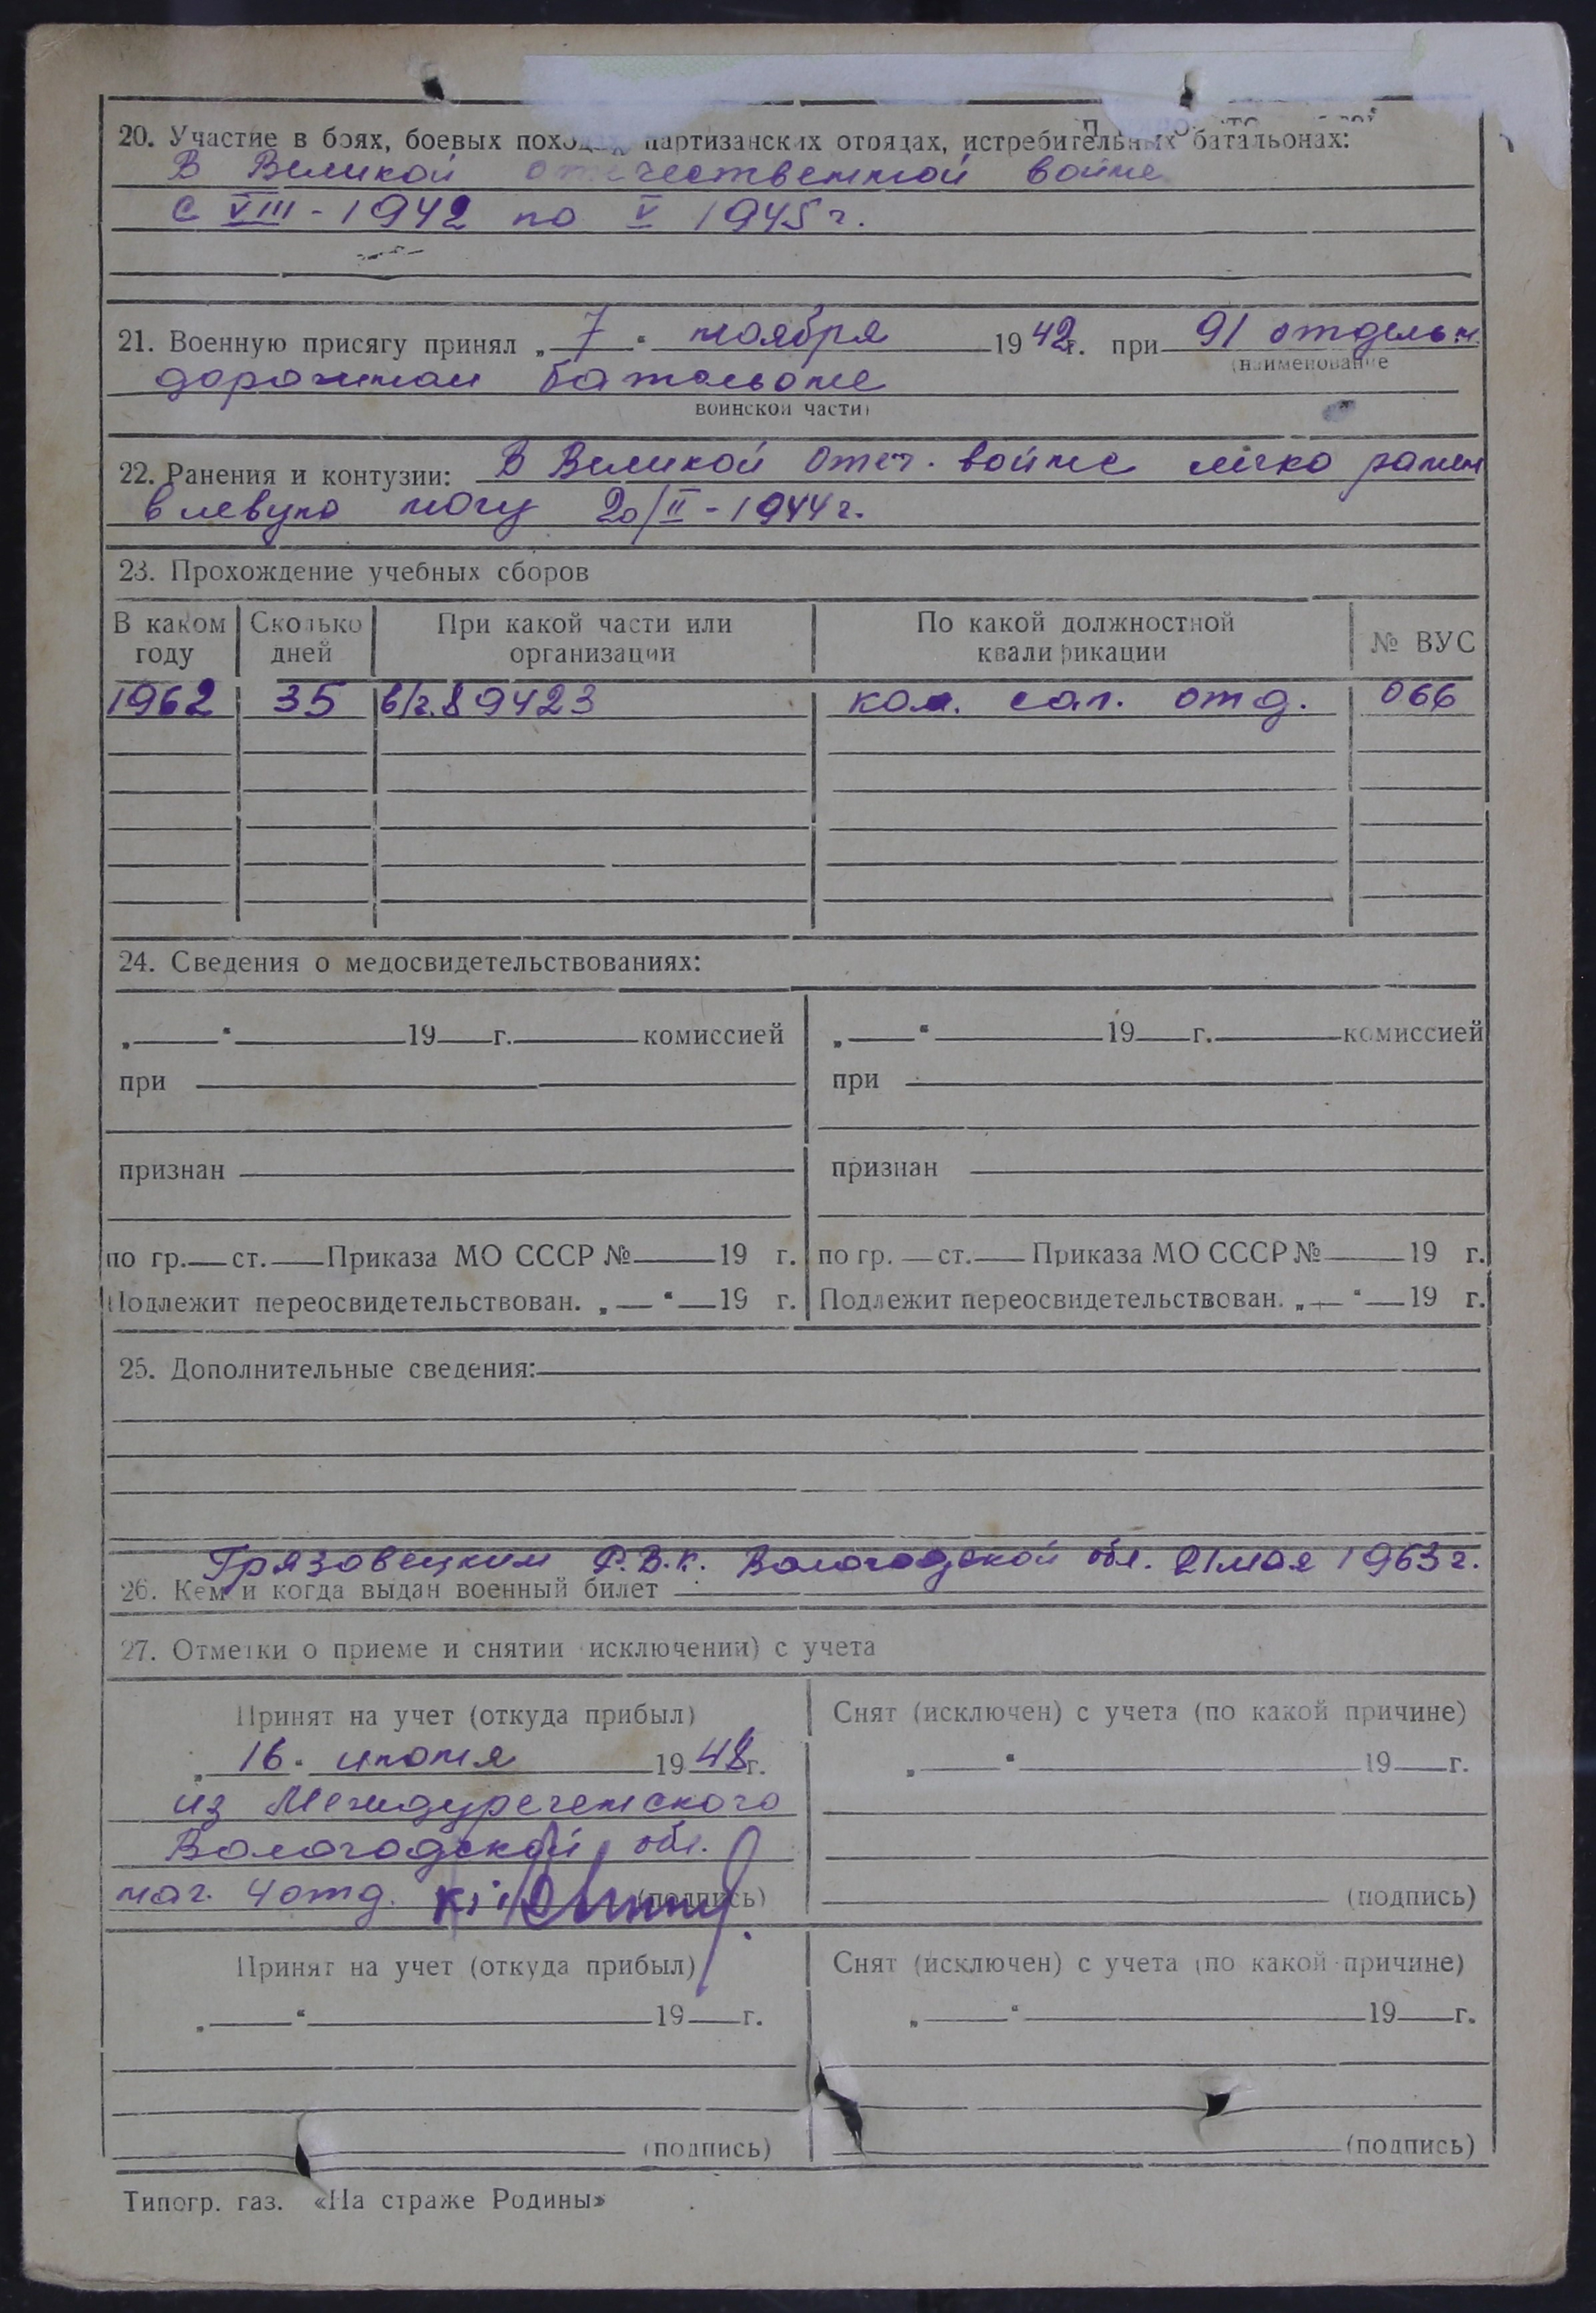 20. Участие в боях, боевых походах, партизанских отрядах, истребительных батальонах:
В Великой отечественной войне
с VIII - 1942 по V 1945 г.
21. Военную присягу принял „ 7 “ ноября 1942 г. при 91 отдельн.
(наименование
дорожном батальоне
воинской части)
22. Ранения и контузии: В Великой Отеч. войне легко ранен
в левую ногу 20/II - 1944 г.
23. Прохождение учебных сборов
В каком году Сколько дней При какой части или организации По какой должностной квалификации № ВУС
1962 35 в/ч 89423 ком. сап. отд. 066
24. Сведения о медосвидетельствованиях:
„ “ 19 г. комиссией „ “ 19 г. комиссией
при при
признан признан
по гр. ст. Приказа МО СССР № 19 г. по гр. ст. Приказа МО СССР № 19 г.
Подлежит переосвидетельствован. „ “ 19 г. Подлежит переосвидетельствован. „ “ 19 г.
25. Дополнительные сведения:
Грязовецким Р.В.К. Вологодской обл. 21 мая 1963 г.
26. Кем и когда выдан военный билет
27. Отметки о приеме и снятии исключении) с учета
Принят на учет (откуда прибыл) Снят (исключен) с учета (по какой причине)
„ 16 “ июня 1948 г. „ “ 19 г.
из Междуреченского
Вологодской обл.
нач. 4 отд. (подпись) (подпись)
Принят на учет (откуда прибыл) Снят (исключен) с учета (по какой причине)
„ “ 19 г. „ “ 19 г.
(подпись) (подпись)
Типогр. газ. «На страже Родины»